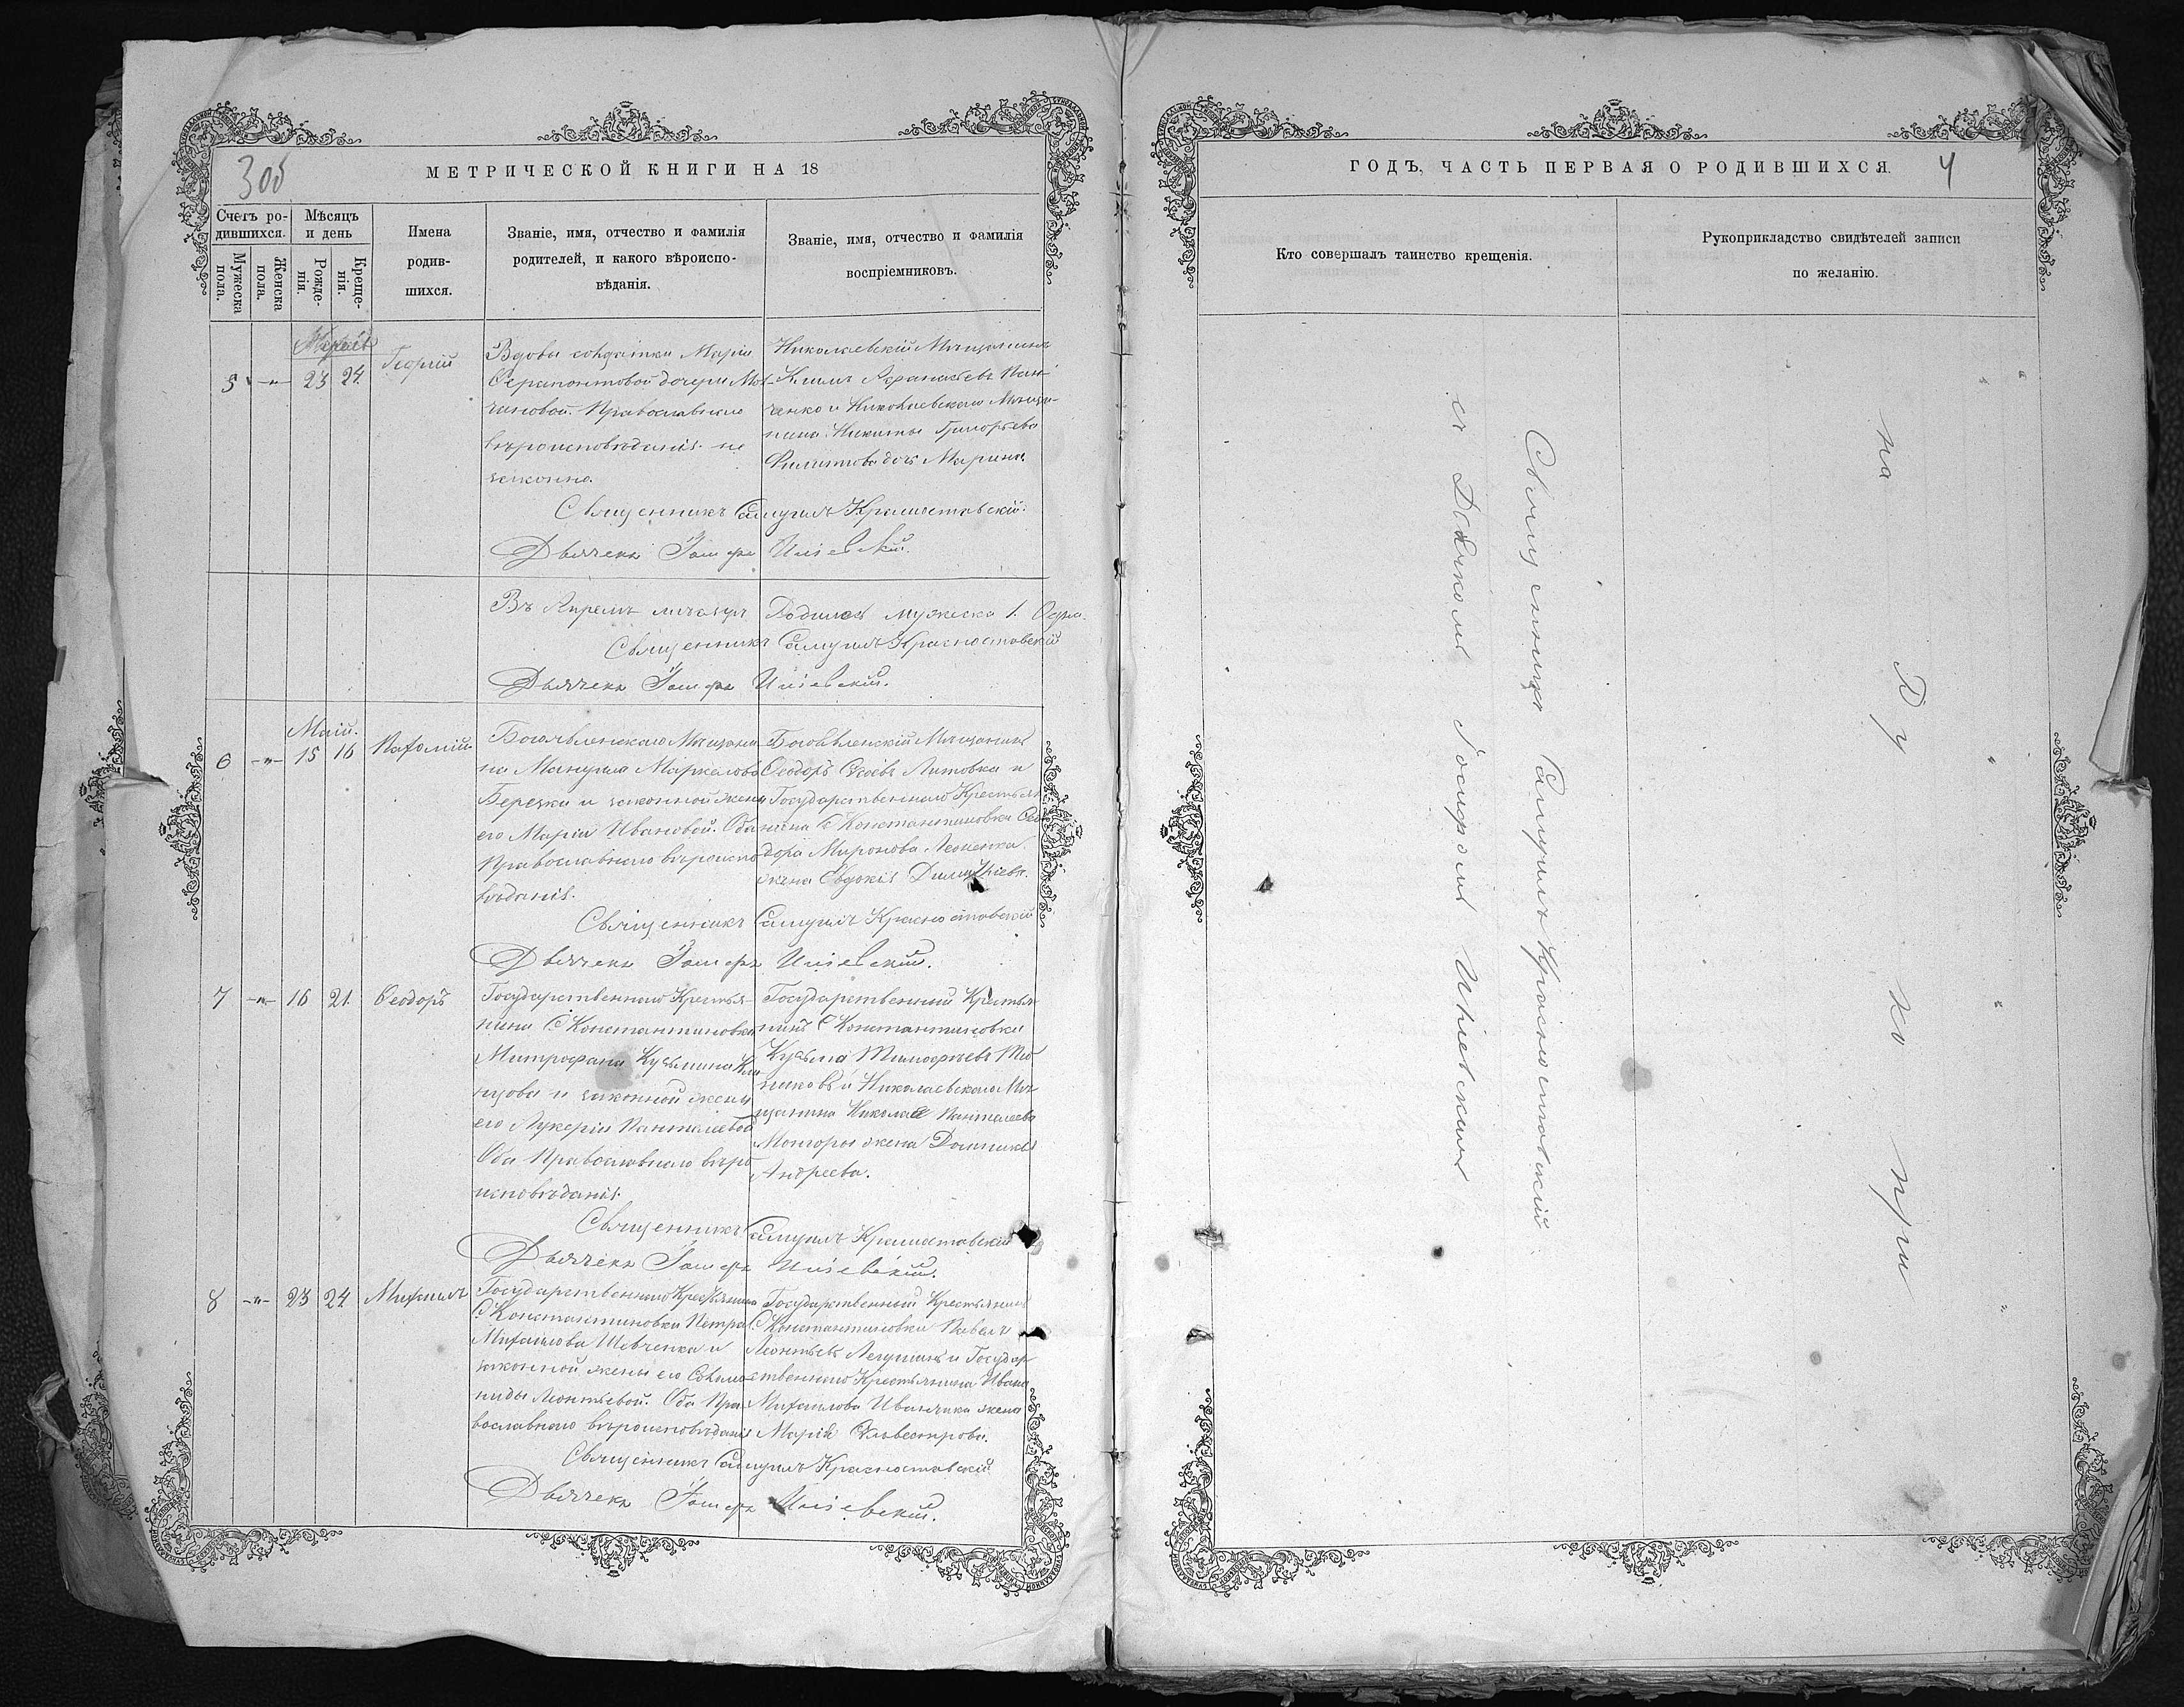 3об
МЕТРИЧЕСКОЙ КНИГИ НА 18
Счетъ ро-
дившихся.
Мужеска
пола.
Женска
пола.
Мѣсяцъ
и день
Рожде-
нія.
Креще-
нія.
Имена
родив-
шихся.
Званіе, имя, отчество и фамилія
родителей, и какого вѣроиспо-
вѣданія.
Званіе, имя, отчество и фамилія
воспріемниковъ.
5 -"- 23 24 Георгій
Вдовы солдатки Маріи
Серапонтовой дочери
Православнаго
вѣроисповѣданія не
законно.
Николаевскій Мѣщанинъ
Климъ Афанасьевъ Пан-
ченко и Николаевскаго Мѣща-
нина Никиты Григорьева
Филипова дочь Марина
Священникъ Самуилъ Красноставскій.
Дьячекъ Іосифъ
Въ Апрелѣ месяцѣ Родился мужеска 1. Одинъ.
Священникъ Самуилъ Красноставскій
Дьячекъ Іосифъ
Маій.
6 -"- 15 16 Пахомій
Богоявленскаго Мѣщани-
на Мануила Маркелова
Березки и законной жены
его Маріи Ивановой. Оба
Православнаго вѣроиспо-
вѣданія.
Богоявленскій Мѣщанинъ
Ѳеодоръ Литовка и
Государственнаго Крестья-
нина С. Константиновки Ѳео-
дора Миронова Леоненка
жена Евдокія
Священникъ Самуилъ Красноставскій
Дьячекъ Іосифъ
7 -"- 16 21 Ѳеодоръ
Государственнаго Крестья-
нина С. Константиновки
Митрофана Кузьмина
и законной жены
его Лукеріи Панталевой
Оба Православнаго вѣро-
исповѣданія.
Государственный Крестья-
нинъ С. Константиновки
Кузьма Тимофѣевъ
и Николаевскаго Мѣ-
щанина Николая Пантелеева
жена Домникія
Андреева.
Священникъ Самуилъ Красноставскій
Дьячекъ Іосифъ
8 -"- 23 24 Михаилъ
Государственнаго Крестьянина
С. Константиновки Петра
Михаилова Шевченка и
законной жены его Соломо-
ниды Леонтьевой. Оба Пра-
вославнаго вѣроисповѣданія
Государственный Крестьянинъ
С. Константиновки Павелъ
Леонтьевъ и Государ-
ственнаго Крестьянина Ивана
Михаилова Иванчика жена
Марія Сильвестрова.
Священникъ Самуилъ Красноставскій
Дьячекъ Іосифъ
ГОДЪ, ЧАСТЬ ПЕРВАЯ О РОДИВШИХСЯ.
4
Кто совершалъ таинство крещенія.
Рукоприкладство свидѣтелей записи
по желанію.
Священникъ Самуилъ Красноставскій
съ Дьячкомъ Іосифомъ
на Ру ко при